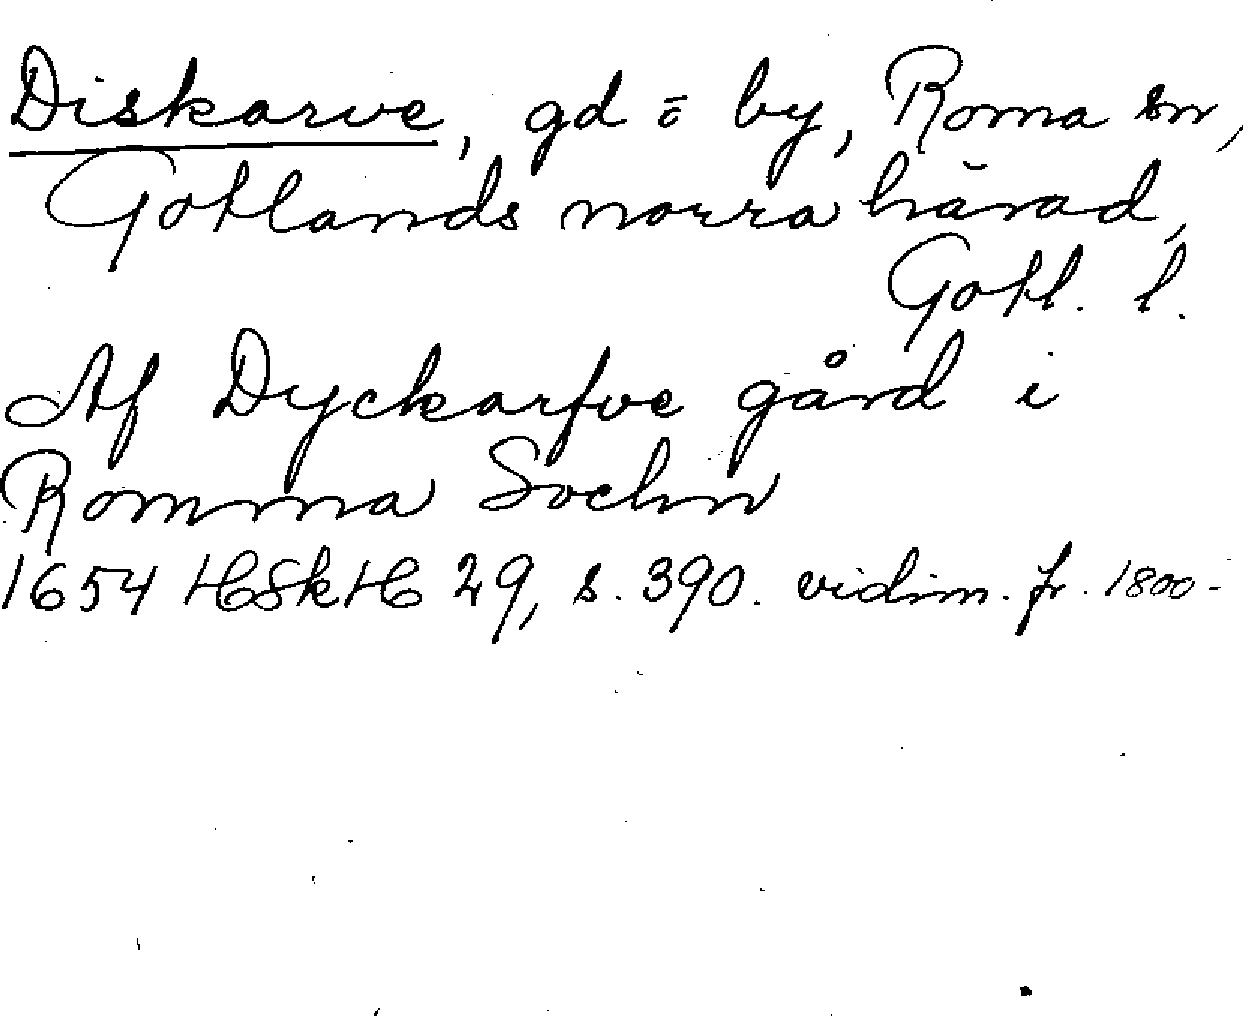 Diskarve, gd ō by, Roma sn,
Gotlands norra härad,
Gotl. l.
Af Dyckarfve gård i
Romma Sochn
1654 HSkH 29, s. 390. vidim. fr. 1800-